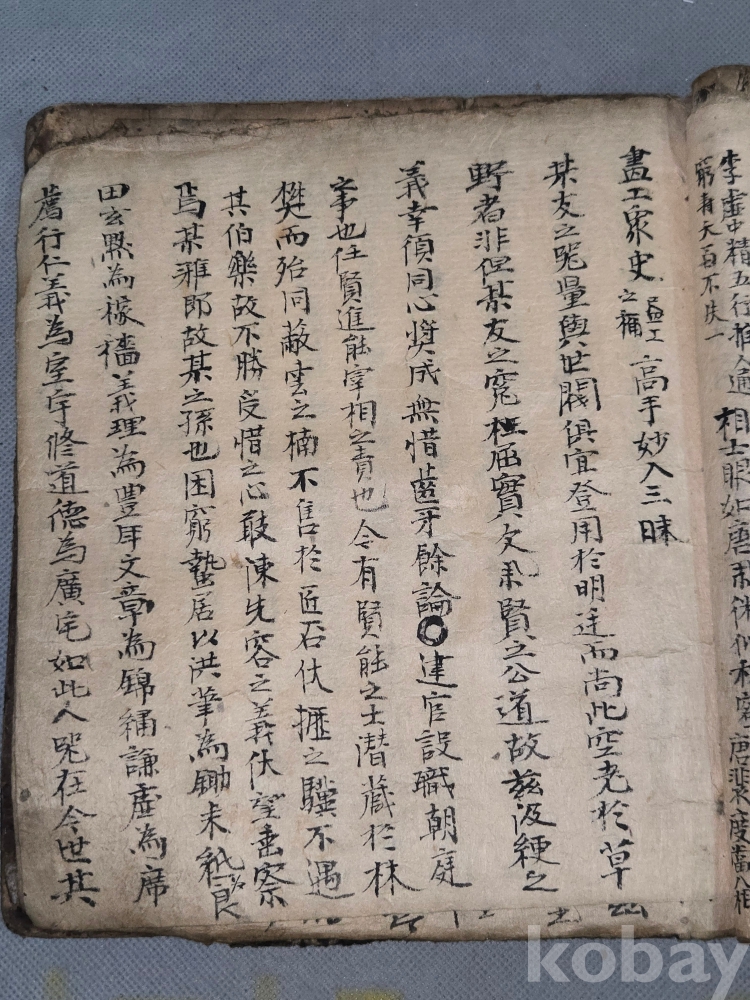 李虛中精五行推人通 相士眼如唐
窮壽夭百不失一
畫工象史 畫工之稱 高手妙入三昧
某友之器量與世閥俱宜登用於明廷而尚此空老於草
野者非但某友之寃枉屈實欠用賢之公道故玆汲綆之
義幸須同心奬成無惜齒牙餘論○建官設職朝庭
之事也任賢進能宰相之責也今有賢能之士潛藏於林
樊而殆同蔽雲之楠不售於匠石伏櫪之驥不遇
其伯樂故不勝受惜之心敢陳先容之義伏望垂察
焉某雅郎故某之孫也困窮蟄居以洪筆為鋤耒紙良
田玄默為稼穡義理為豊年文章為錦繡謙虛為席
薦行仁義為室宇修道德為廣宅如此人器在今世其